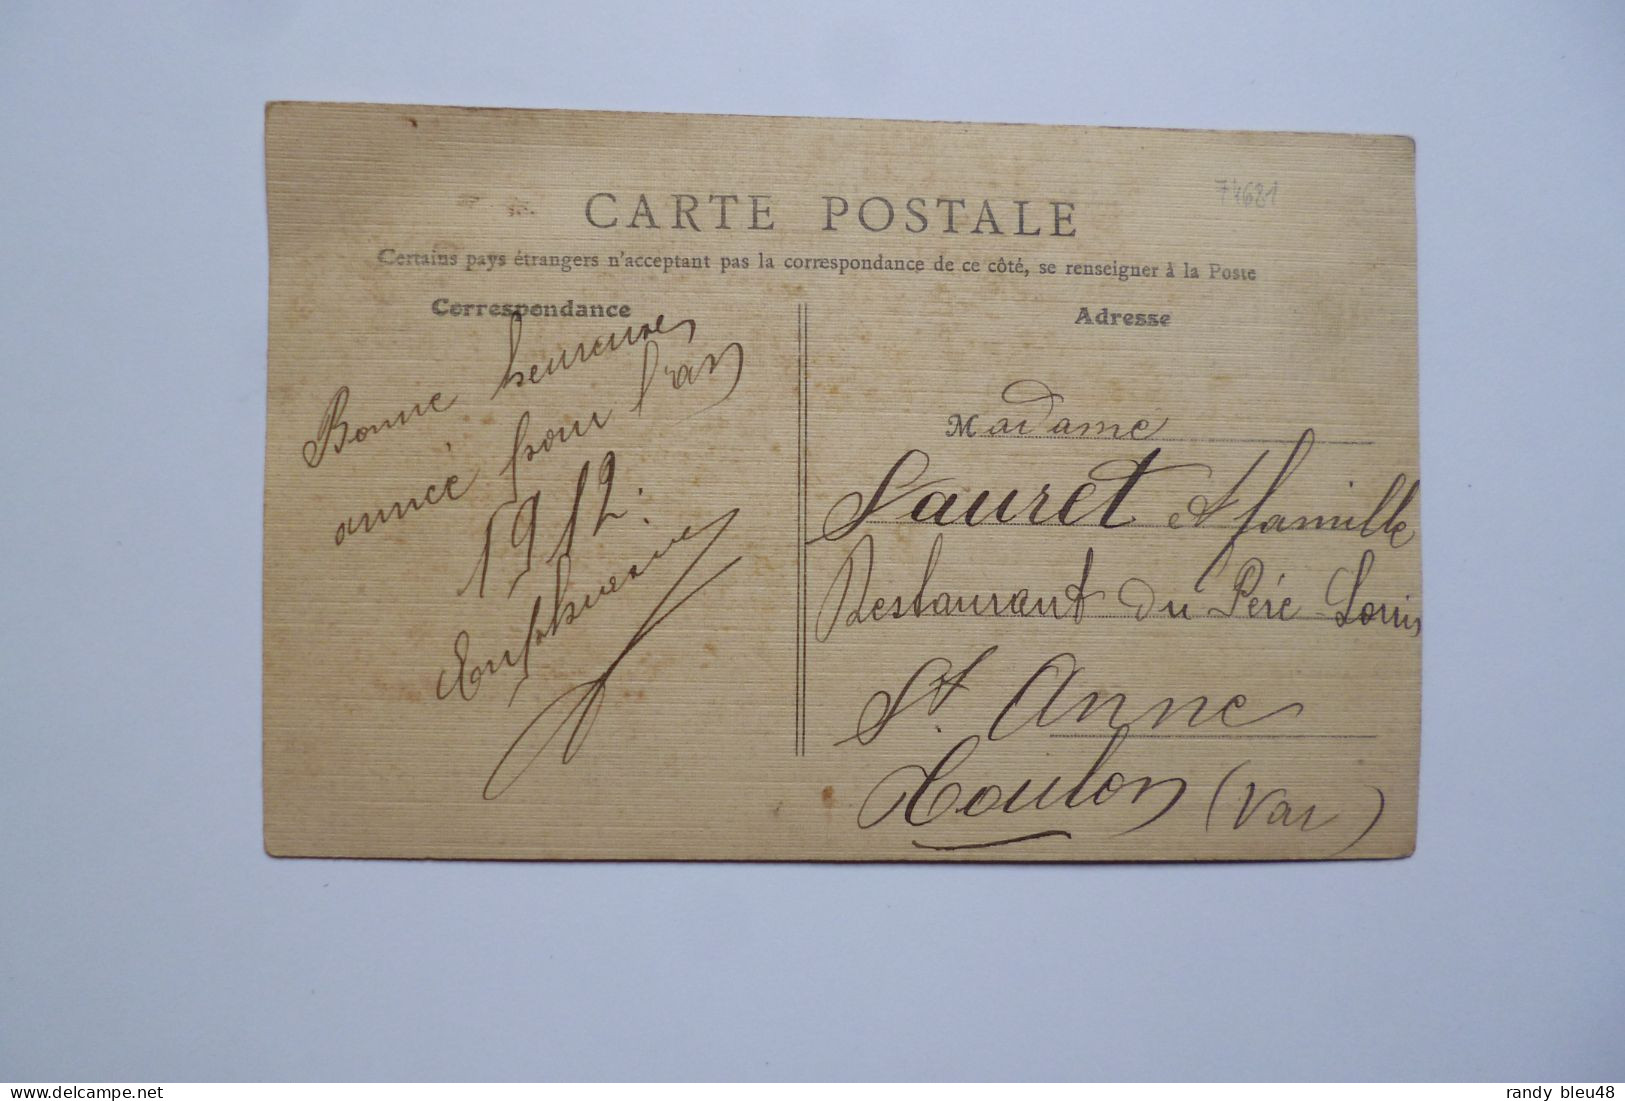 CARTE POSTALE
74681
Certains pays étrangers n'acceptant pas la correspondance de ce côté, se renseigner à la Poste
Correspondance
Bonne heureuse
année pour l'an
1912.
Adresse
Madame
Sauret et famille
Restaurant du Père Louis
St. Anne
Toulon (Var)
delcampe.net
randy bleu48